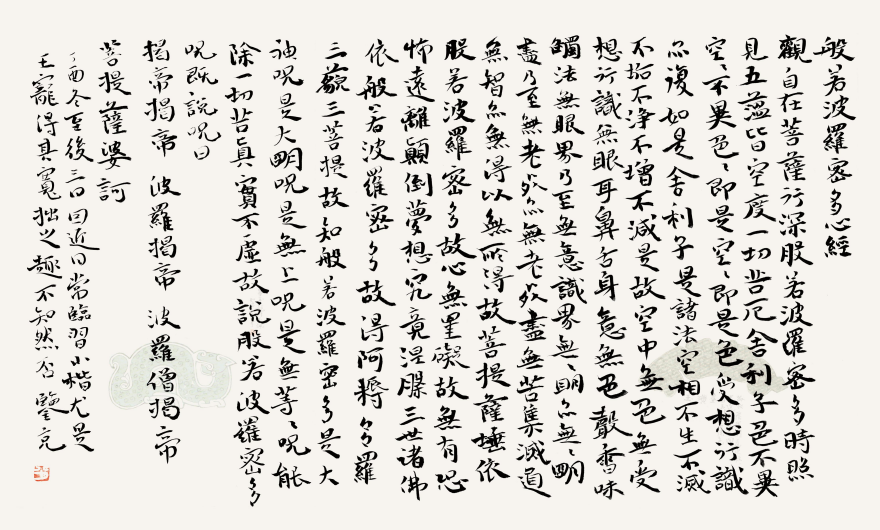 般若波羅密多心經
觀自在菩薩行深般若波羅密多時照
見五蘊皆空度一切苦厄舍利子色不異
空〻不異色〻即是空〻即是色受想行識
亦復如是舍利子是諸法空相不生不滅
不垢不淨不增不減是故空中無色無受
想行識無眼耳鼻舌身意無色聲香味
觸法無眼界乃至無意識界無〻明亦無〻明
盡乃至無老死亦無老死盡無苦集滅道
無智亦無得以無所得故菩提薩埵依
般若波羅密多故心無罣礙故無有恐
怖遠離顛倒夢想究竟涅槃三世諸佛
依般若波羅密多故得阿耨多羅
三藐三菩提故知般若波羅密多是大
神咒是大明咒是無上咒是無等〻咒能
除一切苦真實不虛故說般若波羅密多
咒既說咒曰
揭帝揭帝 波羅揭帝 波羅僧揭帝
菩提薩婆訶
丁酉冬至後三日因近日常臨習小楷尤是
王寵得其寬拙之趣不知然否